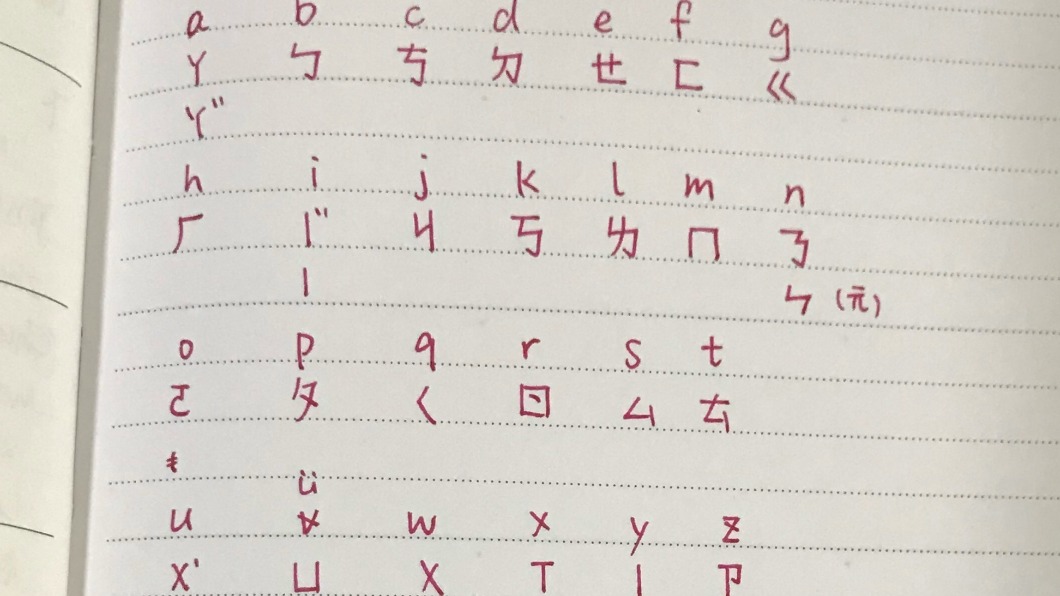 a b c d e f g
ㄚ ㄅ ㄘ ㄉ ㄝ ㄈ ㄍ
ㄚ"
h i j k l m n
ㄏ ㄧ" ㄐ ㄎ ㄌ ㄇ ㄋ
ㄧ ㄣ (元)
o p q r s t
ㄛ ㄆ ㄑ ㄖ ㄙ ㄊ
ü
u w x y z
ㄨ' ㄩ ㄨ ㄒ ㄧ ㄗ